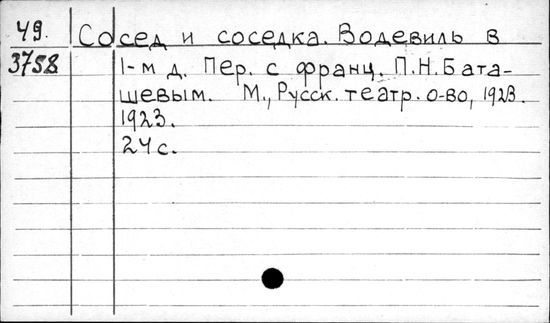 49.
3758
Сосед и соседка. Водевиль в
1-м д. Пер. с франц. П.Н. Бата-
шевым. М., Русск. театр. о-во, 1923.
1923.
24 с.